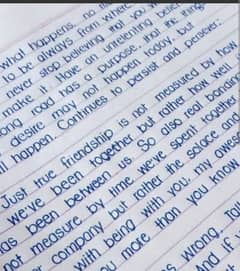 what happens, no m
to be always from where
never stop believing that you w
make it. Have an unrelenting belief
ong road has a purpose. that the things
desire may not happen today, but
ll happen. Continues to persist and persever.
Just true friendship is not measured by how
we've been together but rather how well
as been between us. So also real bonding
not measure by time we've spent together
company but rather the solace and
with being with you, my awes
ou more than you know
s wrong, Tou
and if